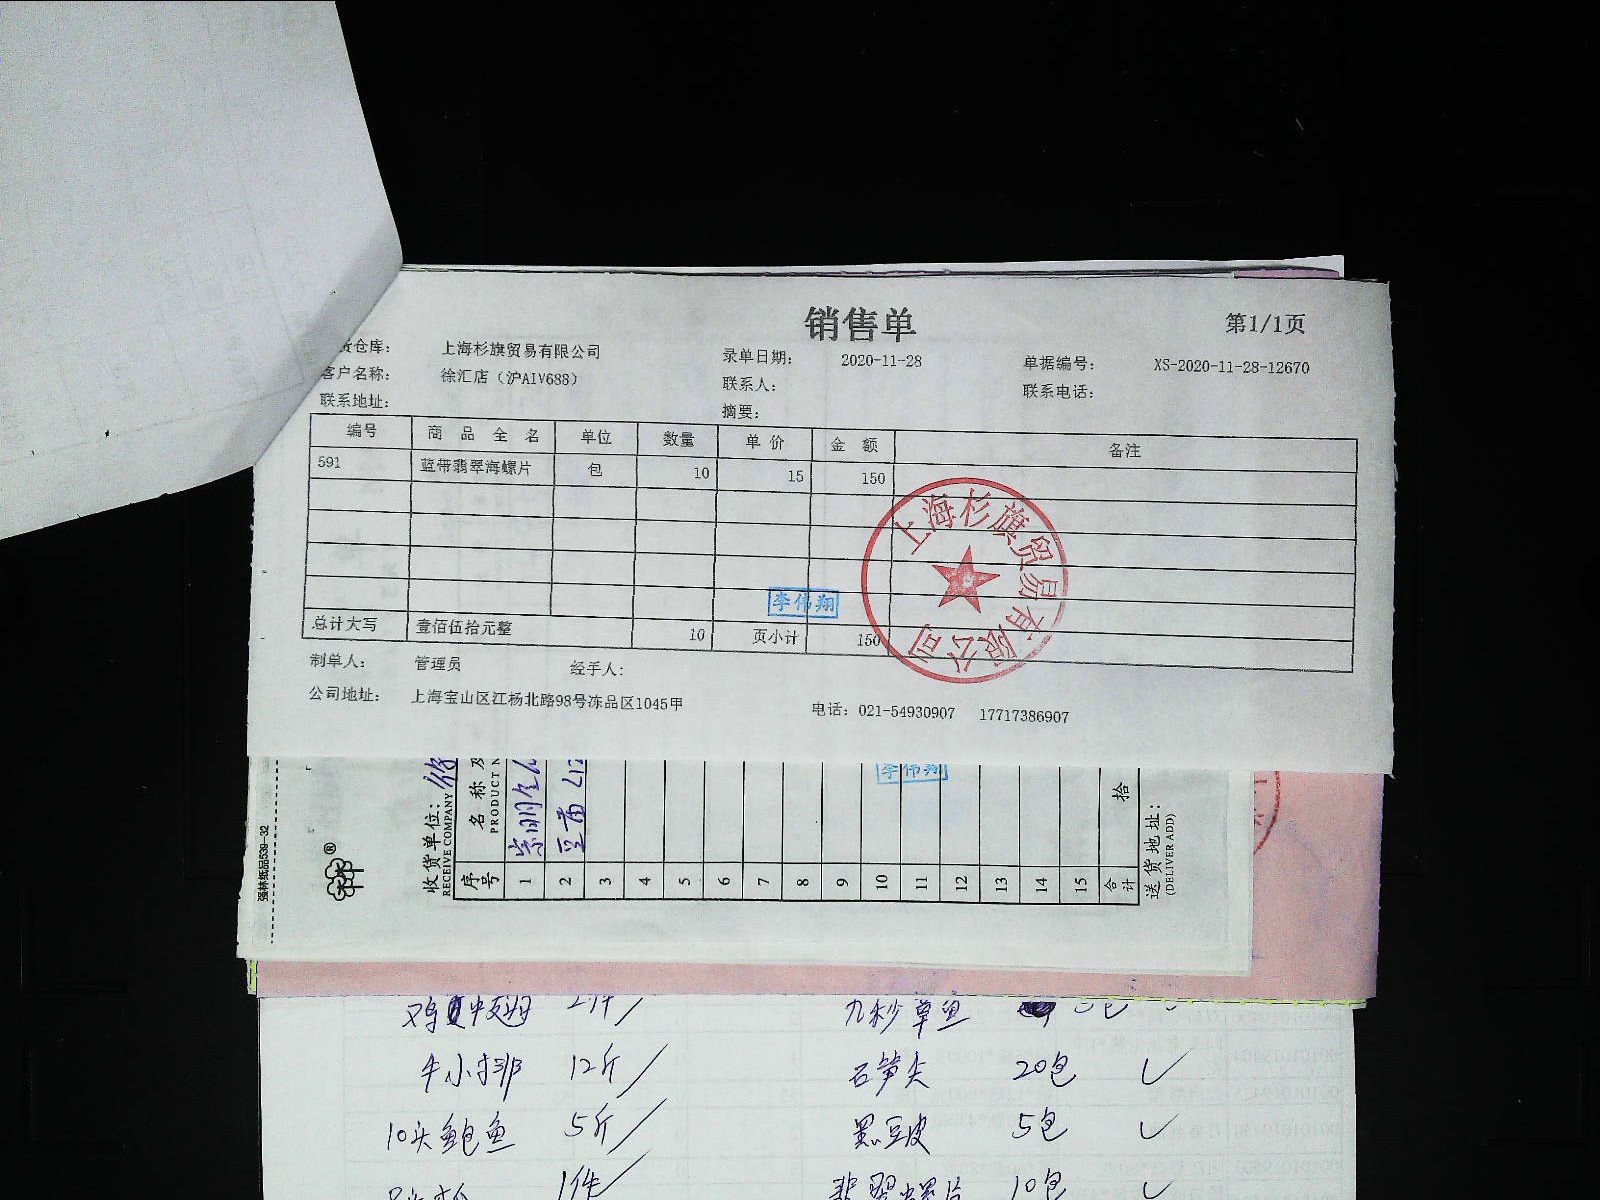 销售单
第1/1页
货仓库： 上海杉旗贸易有限公司 录单日期： 2020-11-28 单据编号： XS-2020-11-28-12670
客户名称： 徐汇店（沪AIV688） 联系人： 联系电话：
联系地址： 摘要：
编号 商品全名 单位 数量 单价 金额 备注
591 蓝带翡翠海螺片 包 10 15 150
上海杉旗贸易有限公司
李伟翔
总计大写 壹佰伍拾元整 10 页小计 150
制单人： 管理员 经手人：
公司地址： 上海宝山区江杨北路98号冻品区1045甲 电话：021-54930907 17717386907
李伟翔
强林纸品539-32
®
收货单位：
RECEIVE COMPANY
序号 名称及
PRODUCT N
1 崇明
2 豆苗
3
4
5
6
7
8
9
10
11
12
13
14
15
合计 拾
送货地址：
(DELIVER ADD)
九秒草鱼
牛小排 12斤 石笋尖 20包
10头鲍鱼 5斤 黑豆皮 5包
1件 翡翠螺片 10包